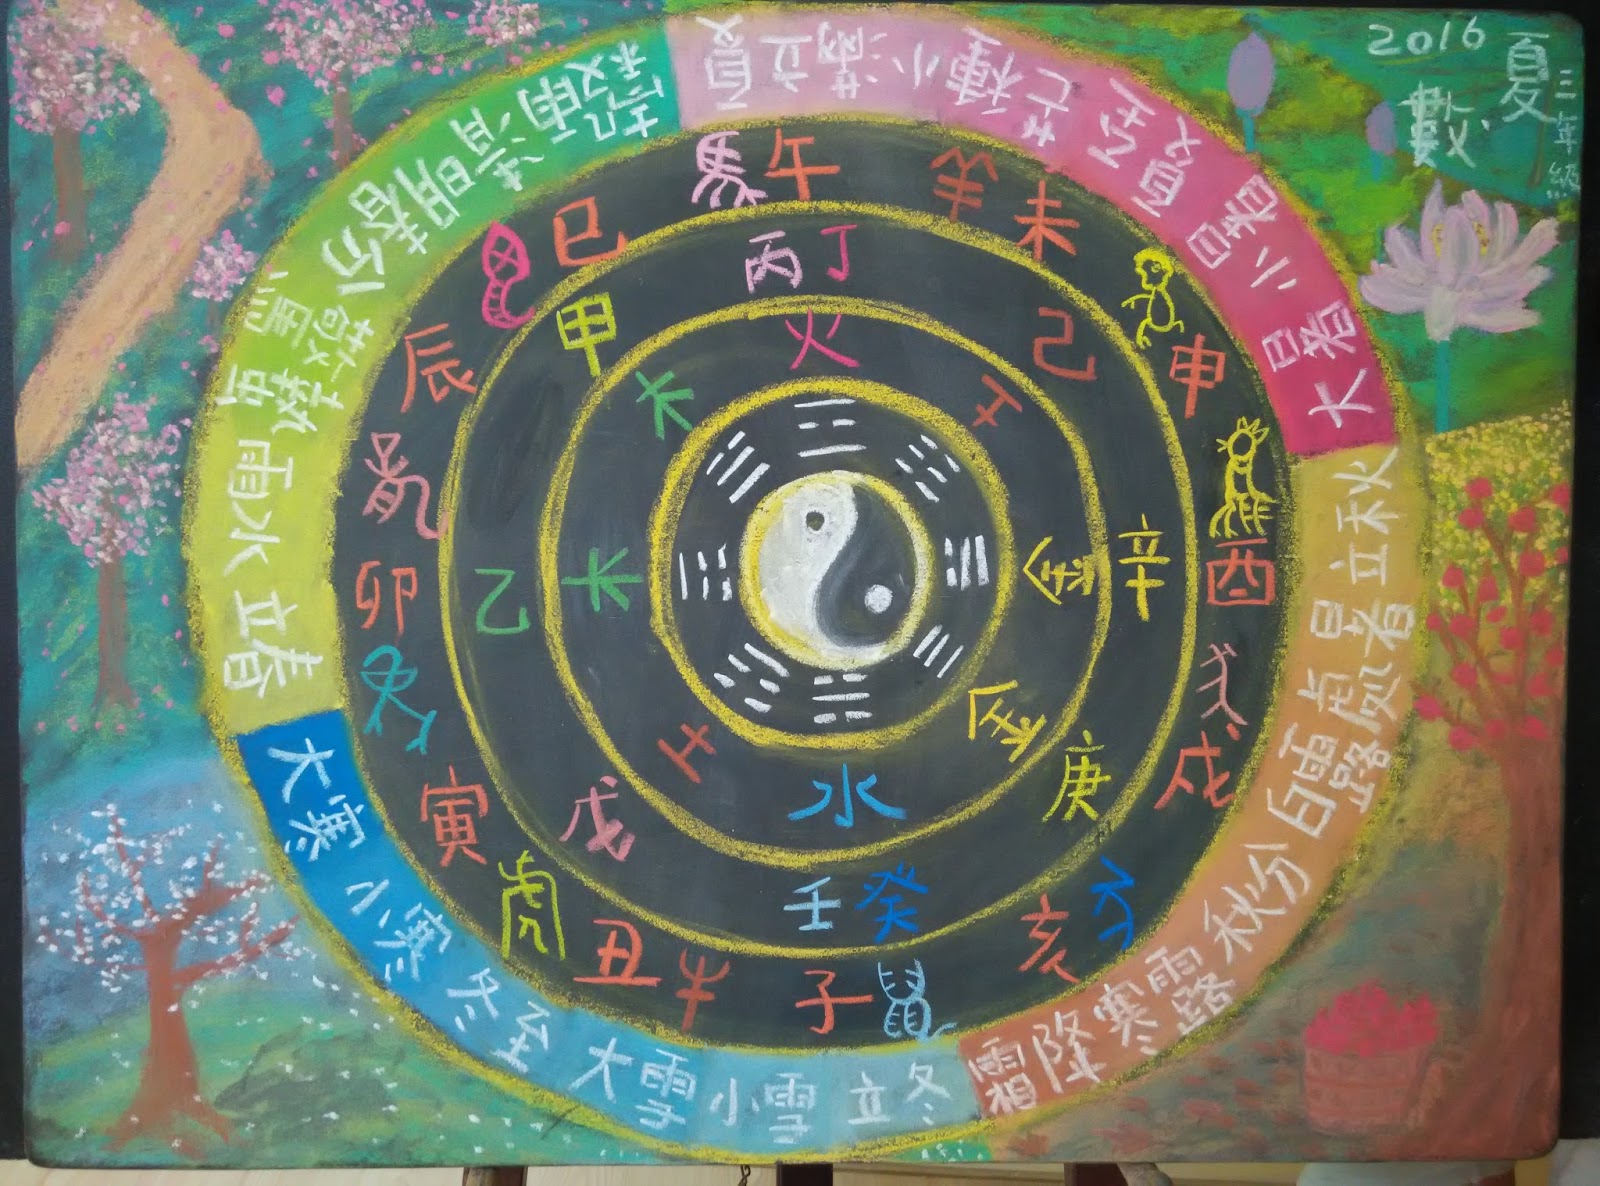 2016
夏
三年級
數
立春
雨水
驚蟄
春分
清明
穀雨
立夏
小滿
芒種
夏至
小暑
大暑
立秋
處暑
白露
秋分
寒露
霜降
立冬
小雪
大雪
冬至
小寒
大寒
馬午
羊未
申
酉
戌
亥
子鼠
丑牛
寅虎
卯
辰
巳
丙丁
己
辛
庚
壬癸
戊
乙
甲
火
土
金
金
水
土
木
木